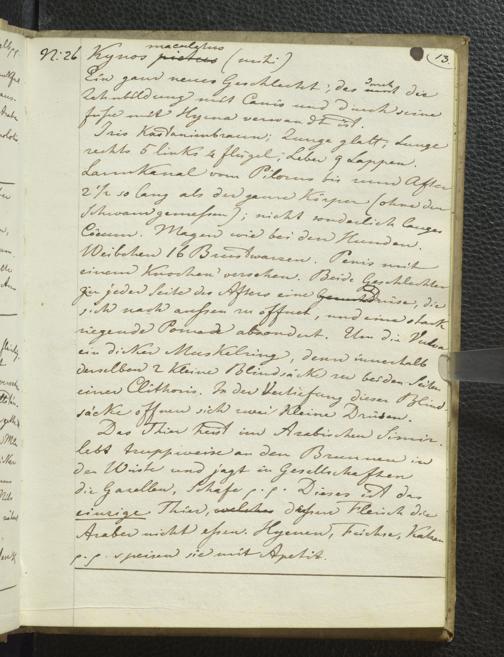 13.
N: 26 Kynos pictus maculatus (mihi)
Ein ganz neues Geschlecht; das durch die
Zahnbildung mit Canis und durch seine
füße mit Hyena verwandt ist.
Iris Kastanienbraun; Zunge glatt; Lunge
rechts 5 links 4 flügel; Leber 9 Lappen.
Darmkanal vom Pilorus bis zum After
2 1/2 so lang als der ganze Körper (ohne den
Schwanz gemessen); nicht sonderlich langes
Cöcum. Magen wie bei den Hunden.
Weibchen 16 Brustwarzen. Penis mit
einem Knochen versehen. Beide Geschlechter
zu jeder Seite des Afters eine Drüse, die
sich nach aussen zu öffnet, und eine stark
riegende Pomade absondert. Um die
ein dicker Muskelring, denn innerhalb
derselben 2 kleine Blindsäcke zu beiden Seiten
einer Clithoris. In der Vertiefung dieser Blind
säcke öffnen sich zwei kleine Drüsen.
Das Thier heist im Arabischen Simir.
lebt truppweise an den Brunnen in
der Wüste und jagt in Gesellschaften
die Gazellen, Schafe p. p. Dieses ist das
einzige Thier, welches dessen Fleisch die
Araber nicht essen. Hyenen, Füchse, Katzen
p. p. speisen sie mit Apetit.